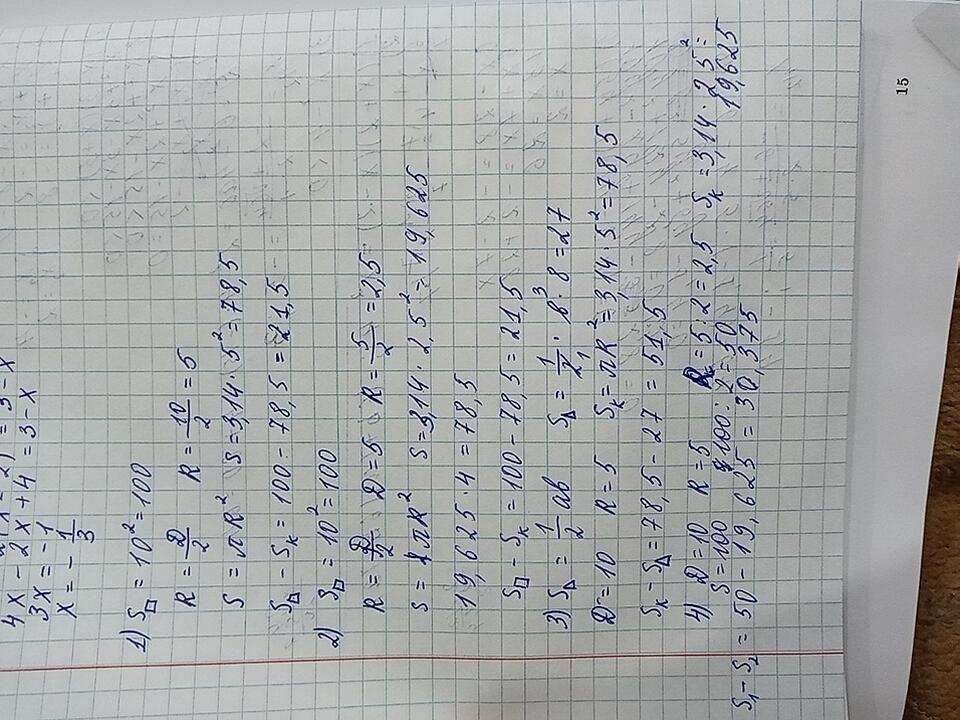 4x - 2x + 4 = 3 - x
3x = -1
x = - 1/3
1) S□ = 10² = 100
R = D/2 R = 10/2 = 5
S = πR² S = 3,14 · 5² = 78,5
S□ - Sк = 100 - 78,5 = 21,5
2) S□ = 10² = 100
R = D/2 D = 5 R = 5/2 = 2,5
S = πR² S = 3,14 · 2,5² = 19,625
19,625 · 4 = 78,5
S□ - Sк = 100 - 78,5 = 21,5
3) S△ = 1/2 ab S△ = 1/2 · 6 · 8 = 27
D = 10 R = 5 Sк = πR² = 3,14 · 5² = 78,5
Sк - S△ = 78,5 - 27 = 51,5
4) D = 10 R = 5 R = 5 : 2 = 2,5 Sк = 3,14 · 2,5² =
S = 100 100 : 2 = 50 19,625
S₁ - S₂ = 50 - 19,625 = 30,375
15